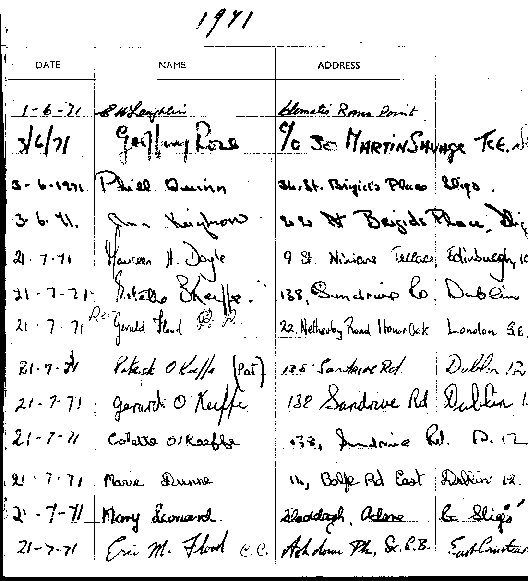 1971
DATE NAME ADDRESS
1-6-71 Rosses Point
3/6/71 Geoffrey Rose c/o 30 MARTIN SAVAGE TCE.
3-6-1971 Phill Quinn 34 St. Brigid's Place Sligo.
3-6.71. 22 St Brigids Place,
21-7-71 Maureen H. Doyle 9 St. Ninians Terrace, Edinburgh,
21-7-71 O'Keeffe. 138, Sundrive Rd. Dublin
21-7-71 Rev. Gerald Flood P.P. 22 Netherby Road Honor Oak London S.E.
21-7-71 Patrick O Keeffe (Pat) 138 Sundrive Rd. Dublin 12
21-7-71 Gerard O Keeffe 138 Sundrive Rd Dublin
21-7-71 Colette O'Keeffe 138, Sundrive Rd. D. 12
21-7-71 Marie Dunne Rd East Dublin 12.
21-7-71 Mary Leonard Co Sligo
21-7-71 Eric M. Flood C.C.